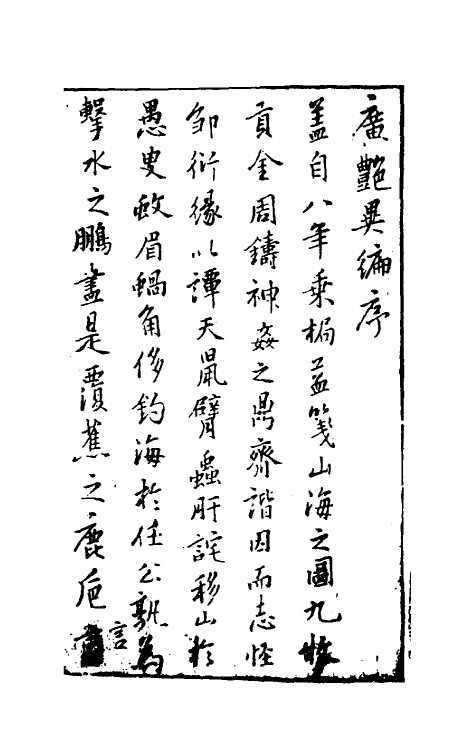 廣豔異編序
蓋自八年乗梮益箋山海之圖九牧
貢金周鑄神姦之鼎齊諧因而志怪
鄒衍緣以譚天鼠臂蟲肝詫移山於
愚叟蚊眉蝸角侈釣海於任公孰為
擊水之鵬盡是覆蕉之鹿巵言